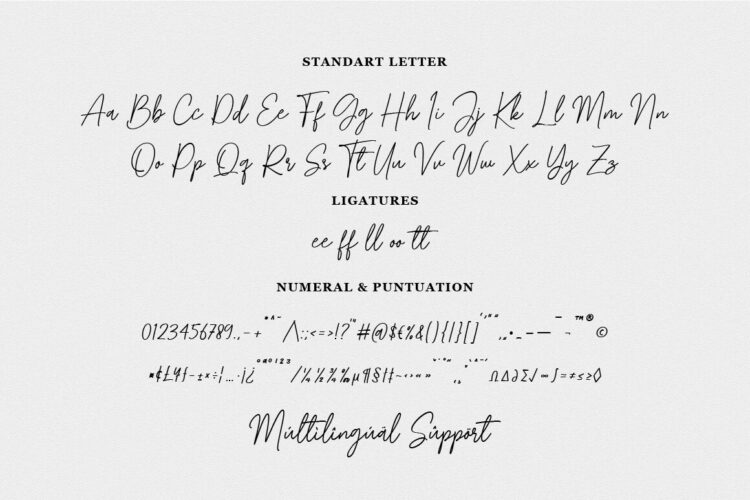 STANDART LETTER
Aa Bb Cc Dd Ee Ff Gg Hh Ii Jj Kk Ll Mm Nn
Oo Pp Qq Rr Ss Tt Uu Vv Ww Xx Yy Zz
LIGATURES
ee ff ll oo tt
NUMERAL & PUNTUATION
0123456789.,-+ *^~ /\:;<=>!?'" #@$€%&(){|}[] ‚„•_–— ¯ ¬ ™® ©
¤¢£¥ƒ−±×÷¡…·¡¿ °ªº123 /¼½¾‰µ¶§|†~‹›«» ΩΔ∂∑√∞∫=≠≤≥◊
Múltilingúäl Sûppört